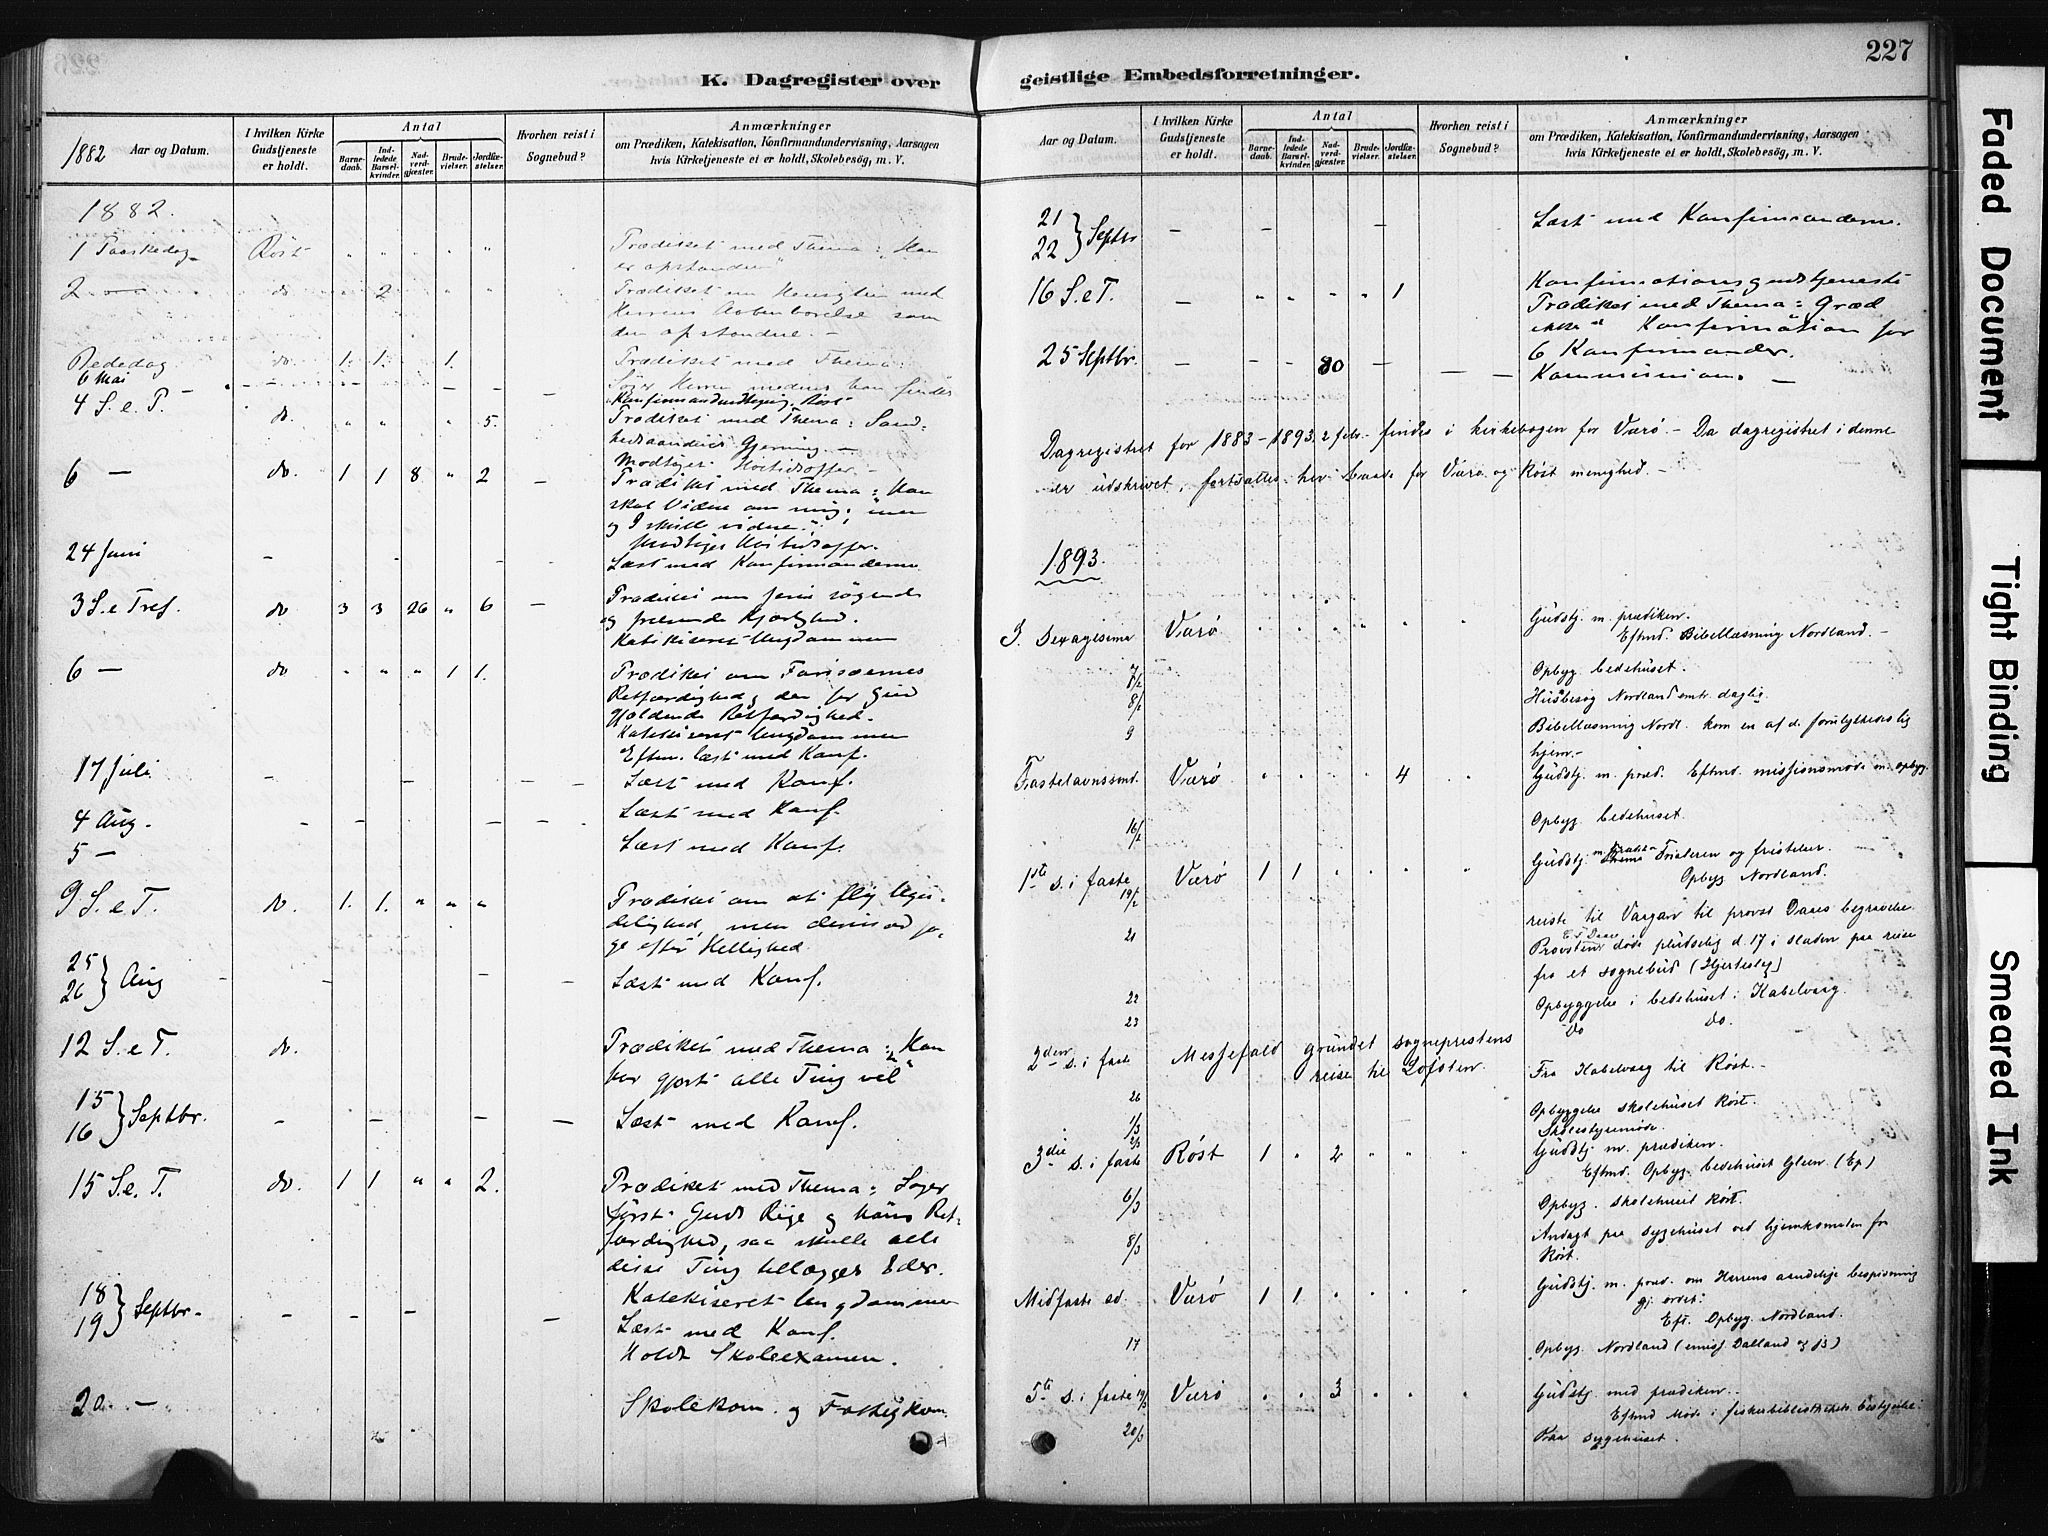 227
K. Dagregister over
geistlige Embedsforretninger.
1882
Aar og Datum.
I hvilken Kirke Gudstjeneste er holdt.
Antal
Barnedaab.
Indledede Barselkvinder.
Nadverdgjæster.
Brudevielser.
Jordfæstelser.
Hvorhen reist i Sognebud?
Anmærkninger
om Prædiken, Katekisation, Konfirmandundervisning, Aarsagen
hvis Kirketjeneste ei er holdt, Skolebesög, m. V.
1882.
1 Paaskedag Røst " " " " " Prædiket med Thema: "Han
er opstanden"
2 — do " 2 " " " Prædiket om Kvinderne med
Herrens Aabenbarelse som
den opstandne. —
Bededag do 1. 1. " 1. Prædiket med Thema:
Søger Herren medens han findes
6 Mai — — — — — — Konfirmandundtegning. Røst
4 S. e. P. do. " " " 5. Prædiket med Thema: Sand-
hedsaandens Gjerning. —
Modtaget Høitidsoffer. —
6 — do. 1 1 8 " 2 — Prædiket med Thema: Han
skal vidne om mig, men
og I skulle vidne."
Modtaget Høitidsoffer.
24 Juni — — — — Læst med Konfirmanderne
3 S. e Tref. do 3 3 26 " 6 — Prædiket om Jesu søgende
og frelsende Kjærlighed.
Katekiseret Ungdommen
6 — do " " " 1 1. Prædiket om Farisæernes
Retfærdighed og den for Gud
Gjældende Retfærdighed.
Katekiseret Ungdommen
Efterm. læst med Konf.
17 Juli — — — — — — Læst med Konf.
4 Aug. — — — — Læst med Konf.
5 — Læst med Konf.
9 S. e T. do. 1. 1. " " " Prædiket om at fly Ugu-
delighed, men derimod ja-
ge efter Hellighed.
25
26 } Aug — — — — Læst med Konf.
12 S. e T. do. Prædiket med Thema: "Han
har gjort alle Ting vel"
15
16 } Septbr. — — — — Læst med Konf.
15 S. e. T. do. 1 1 " " 2. Prædiket med Thema: Søger
først Guds Rige og hans Ret-
færdighed, saa skulle alle
disse Ting tillægges Eder.
Katekiseret Ungdommen
18
19 } Septbr. — — — — Læst med Konf.
Holdt Skoleexamen.
20 — Skolekom. og Fattigkom.
Aar og Datum.
I hvilken Kirke Gudstjeneste er holdt.
Antal
Barnedaab.
Indledede Barselkvinder.
Nadverdgjæster.
Brudevielser.
Jordfæstelser.
Hvorhen reist i Sognebud?
Anmærkninger
om Prædiken, Katekisation, Konfirmandundervisning, Aarsagen
hvis Kirketjeneste ei er holdt, Skolebesög, m. V.
21
22 } Septbr — — — Læst med Konfirmanderne.
16 S. e T. — " " " " 1 Konfirmationsgudstjeneste
Prædiket med Thema: Græd
ikke" Konfirmation for
6 Konfirmander.
25 Septbr. — — 80 — — — Kommunion. —
Dagregistret for 1883 – 1893 2 febr. findes i kirkebogen for Værø. – Da dagregistret i denne
er udskrevet, fortsættes her baade for Værø og Røst menighed. –
1893.
S. Sexagesima Værø " " " " " " Gudstj. m. prædiken.
Eftmd. Bibellæsning Nordland. –
7/2 Opbyg. bedehuset.
8/2 Husbesøg Nordland omtr. daglig.
9 Bibellæsning Nordl. kom en af d. forulykkedes lig
hjem. –
Fastelavnssønd. Værø " " " " 4 " Gudstj. m. præd. Eftmd. missionsmøde m. opbyg.
16/2 Opbyg. bedehuset.
1ste s. i faste 19/2 Værø 1 1 " " " " Gudstj. m. prædiken Thema Fristeren og fristelser.
Opbyg. Nordland.
21 reiste til Vaagan til provst Daaes begravelse.
Provsten døde pludselig d. 17 i slæden paa reise
fra et sognebud (Hjerteslag)
22 Opbyggelse i bedehuset i Kabelvaag.
23 do do.
2den s. i faste Messefald grundet sogneprestens
reise til Lofoten.
26 Fra Kabelvaag til Røst. –
1/3 Opbyggelse skolehuset Røst.
2/3 Skolestyremøde.
3die s. i faste Røst 1 " 2 " " " Gudstj. m. prædiken.
Eftmd. Opbyg. bedehuset Gleen. (Ep)
6/3 Opbyg. skolehuset Røst.
8/3 Andagt paa sygehuset ved hjemkomsten fra
Røst.
Midfaste sd. Værø 1 1 " " " " Gudstj. m. præd. om Herrens aandelige bespisning
gj. ordet.
Eft. Opbyg. Nordland.
17 Opbyg. Nordland (emiss. Dalland og jeg)
5te s. i faste 19/3 Værø " " 3 " " " Gudstj. med prædiken.
Eftmd Møde i fiskerbibliothekets bestyrelse.
20/3 Paa sygehuset.
Faded Document
Tight Binding
Smeared Ink